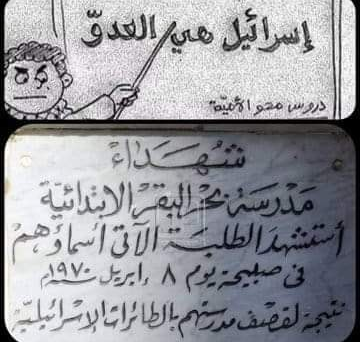 إسرائيل هي العدوّ
دروس محو الأميّة
شهداء
مدرسة بحر البقر الابتدائية
استشهد الطلبة الآتى أسماؤهم
فى صبيحة يوم ٨ ابريل سنة ١٩٧٠
نتيجة لقصف مدرستهم بالطائرات الاسرائيلية